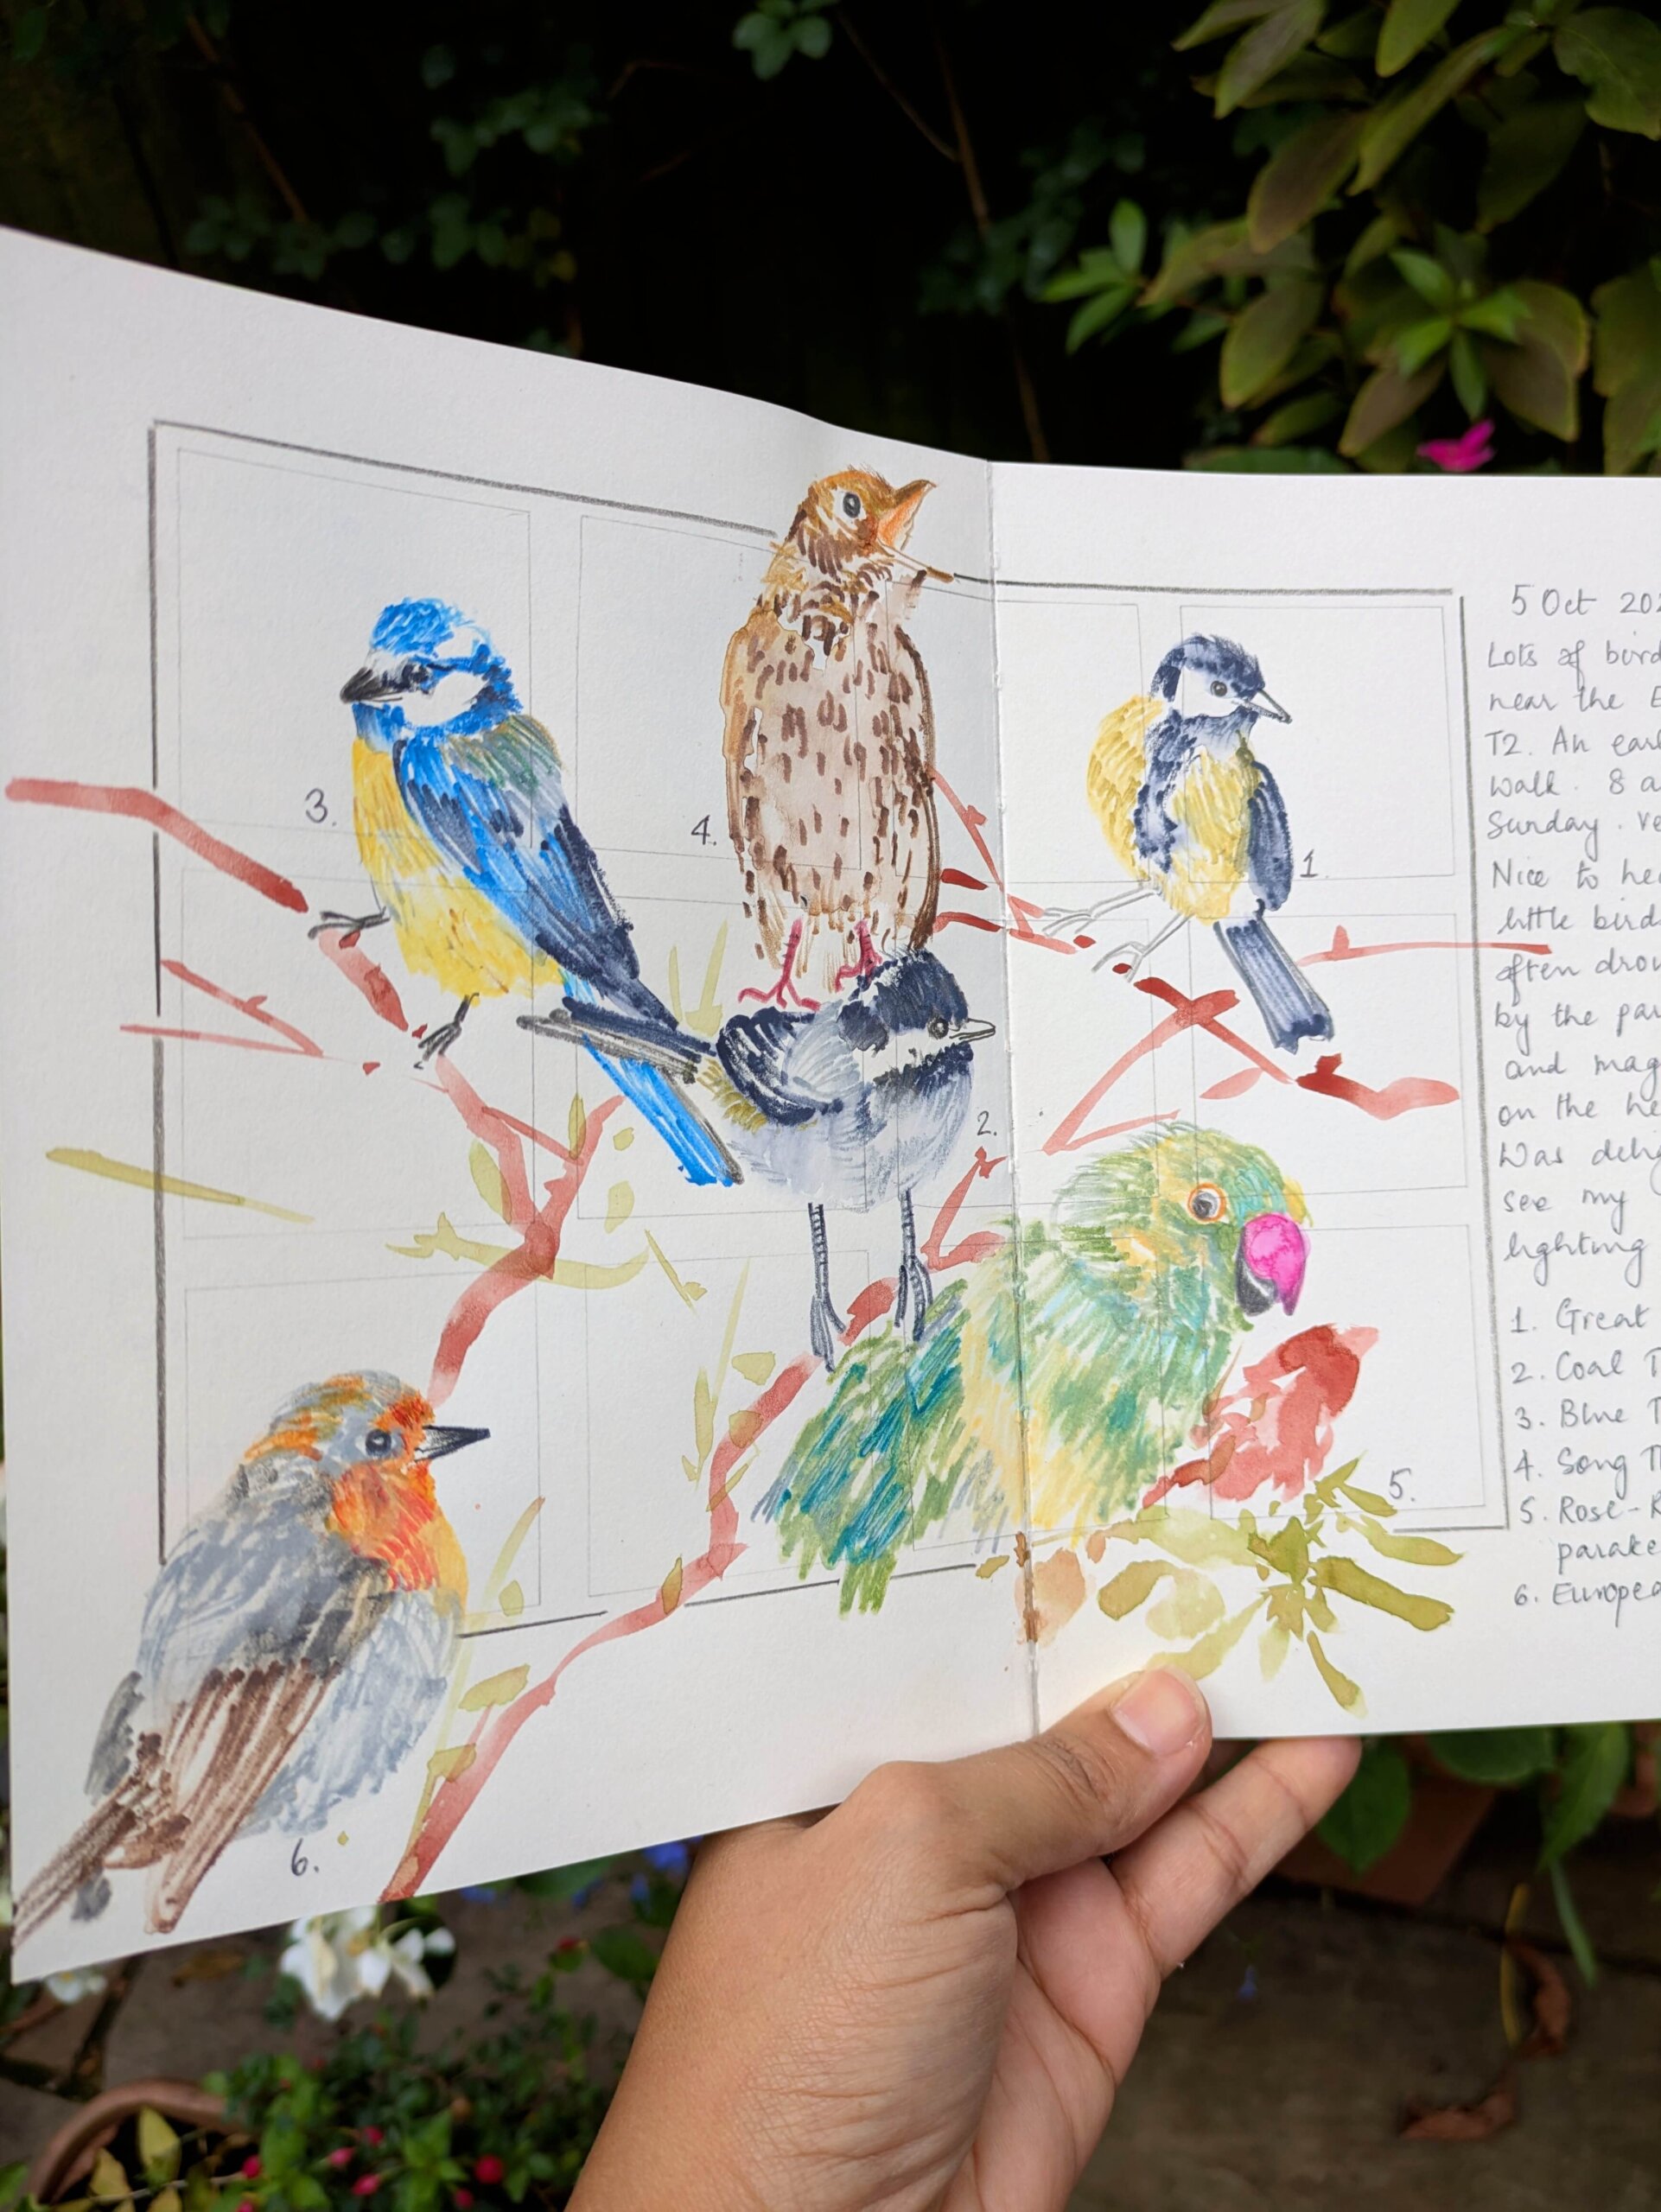 3.
4.
1.
2.
5.
6.
5 Oct 202
Lots of bird
near the E
T2. An earl
walk. 8 a
Sunday. Ve
Nice to hea
little birds
often drow
by the par
and mag
on the he
Was delig
see my
lighting
1. Great
2. Coal T
3. Blue T
4. Song Th
5. Rose-R
parake
6. Europea